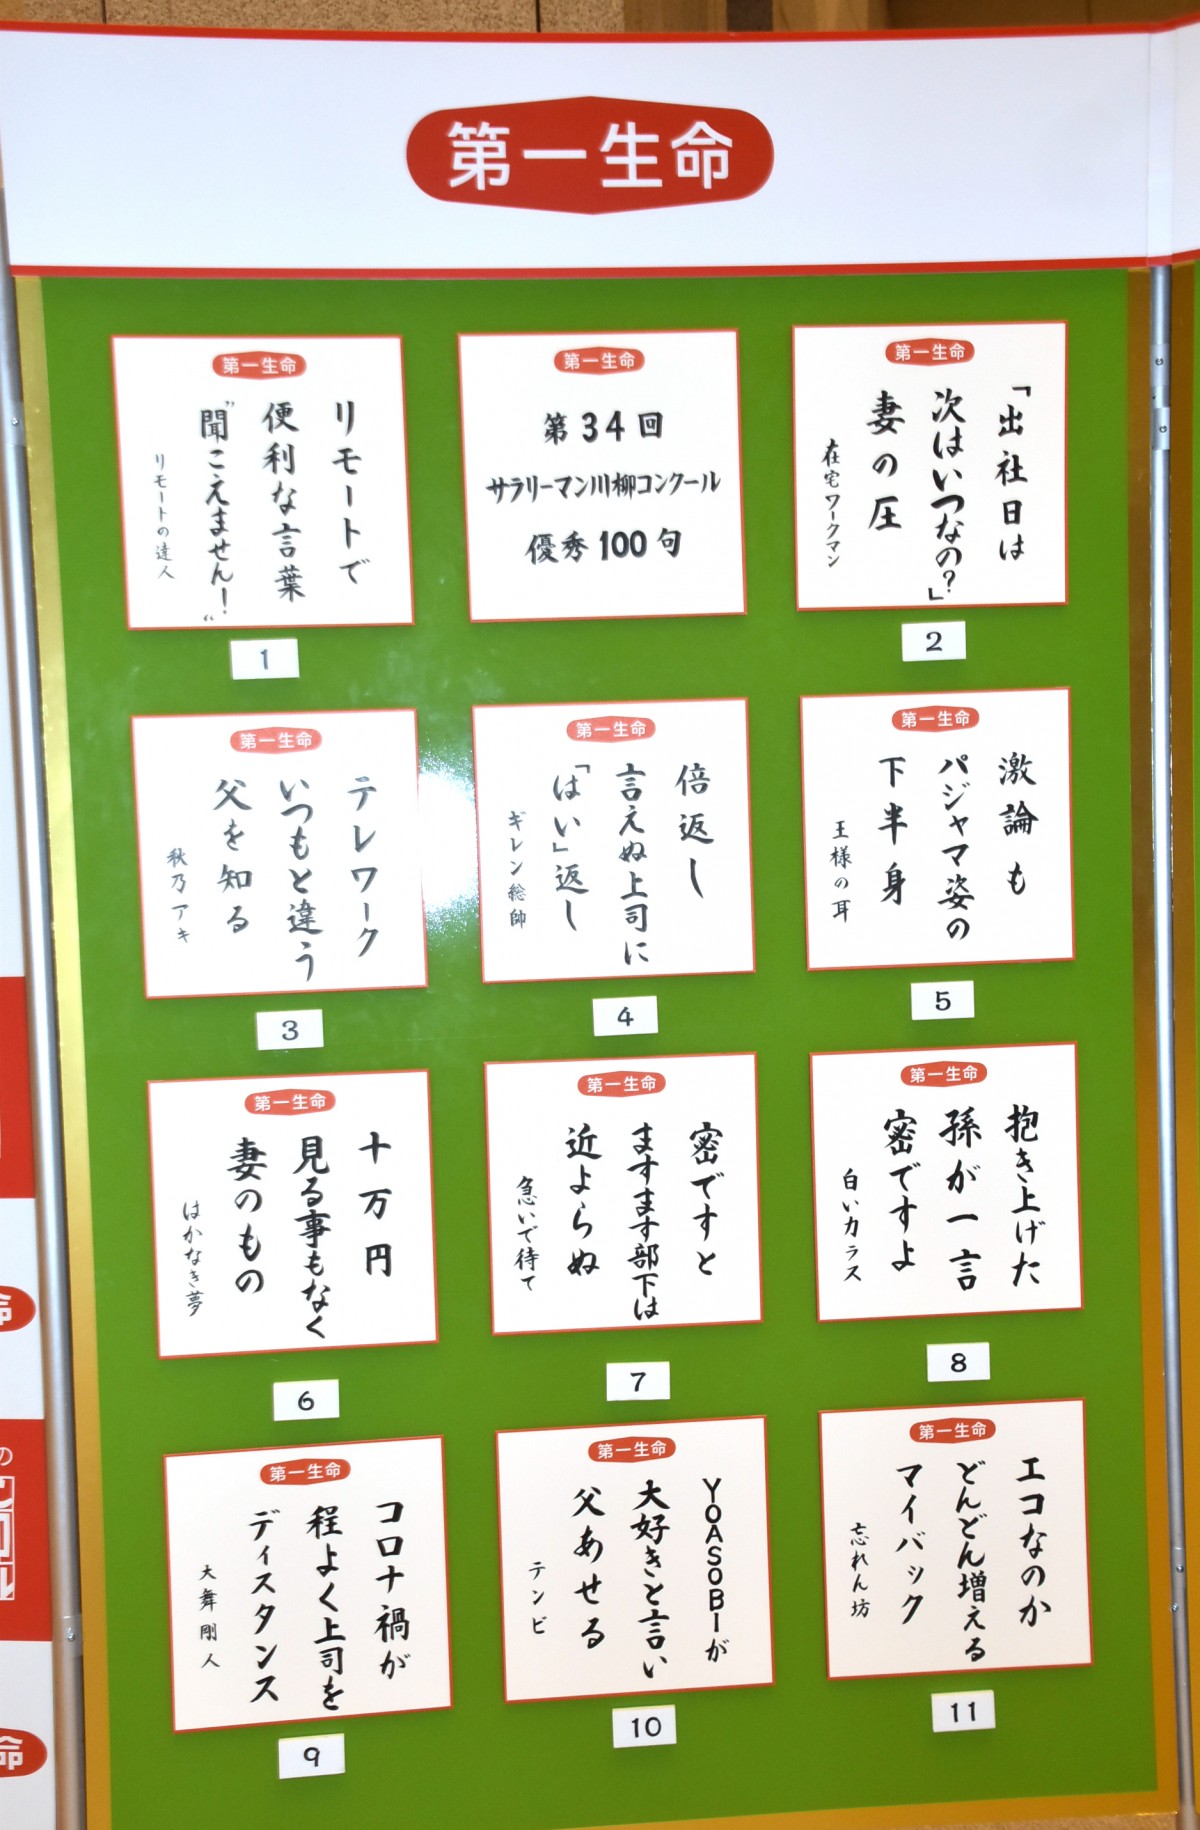 第一生命
第一生命
リモートで
便利な言葉
"聞こえません！"
リモートの達人
1
第一生命
第34回
サラリーマン川柳コンクール
優秀100句
第一生命
「出社日は
次はいつなの？」
妻の圧
在宅ワークマン
2
第一生命
テレワーク
いつもと違う
父を知る
秋乃アキ
3
第一生命
倍返し
言えぬ上司に
「はい」返し
ギレン総帥
4
第一生命
激論も
パジャマ姿の
下半身
王様の耳
5
第一生命
十万円
見る事もなく
妻のもの
はかなき夢
6
第一生命
密ですと
ますます部下は
近よらぬ
急いで待て
7
第一生命
抱き上げた
孫が一言
密ですよ
白いカラス
8
第一生命
コロナ禍が
程よく上司を
ディスタンス
大舞剛人
9
第一生命
YOASOBIが
大好きと言い
父あせる
テンビ
10
第一生命
エコなのか
どんどん増える
マイバック
忘れん坊
11
命
の
ル
命